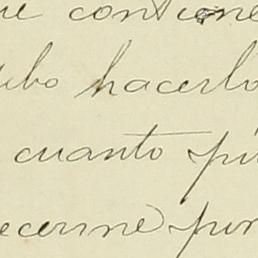 ue contiene
ubo hacerlo
cuanto pu
ecerme por